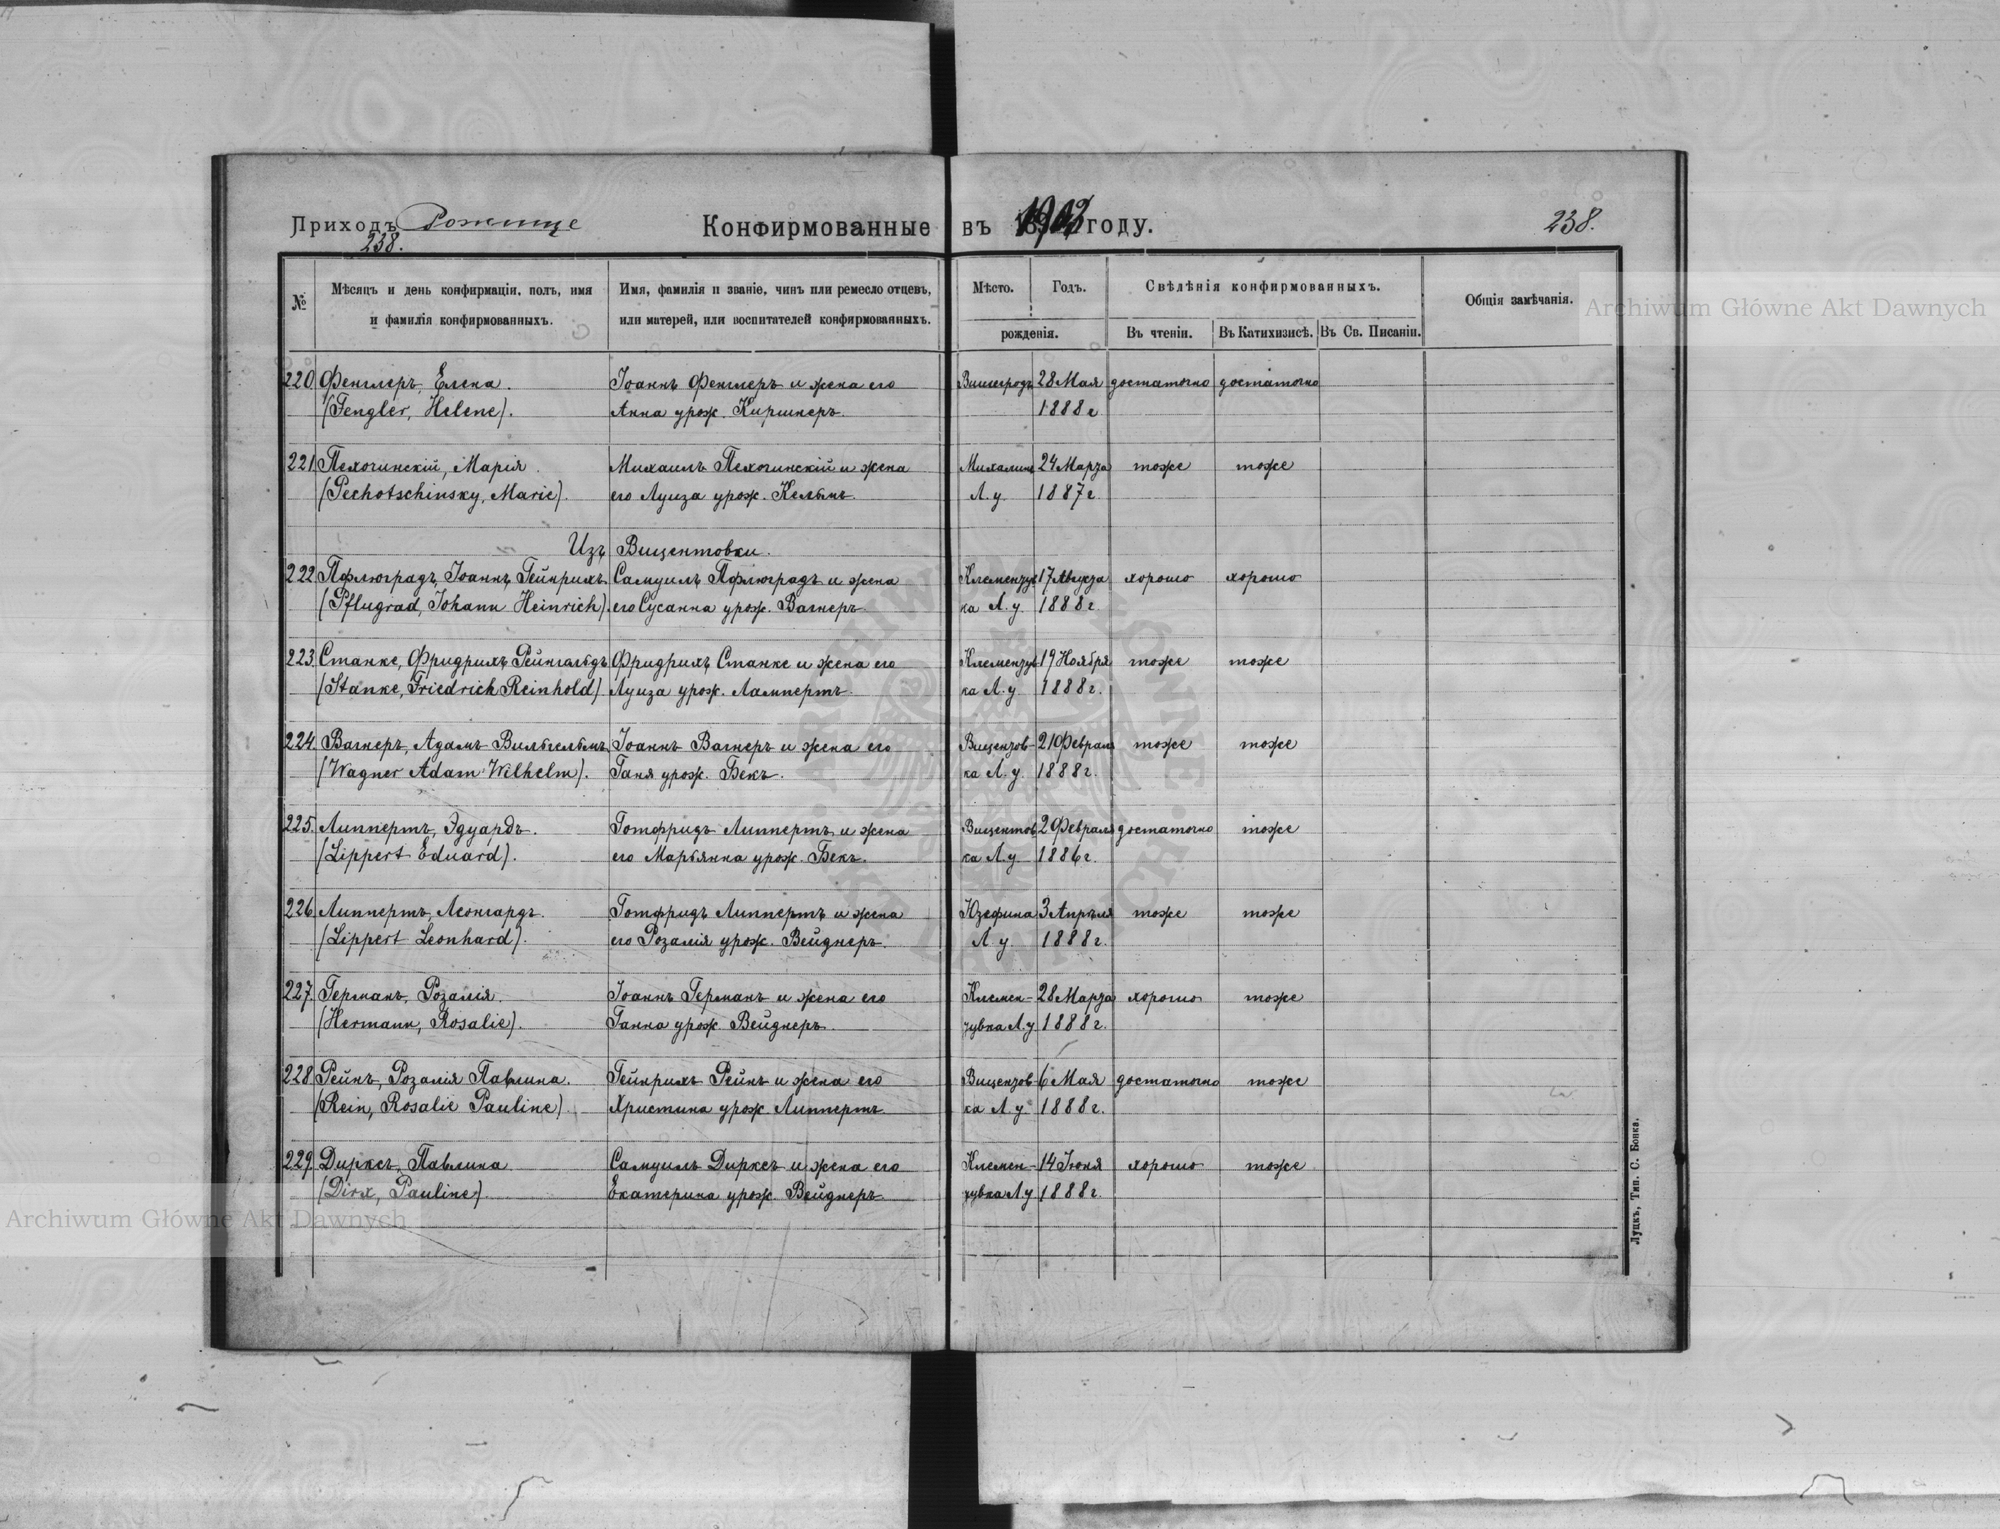 Приходъ Рожище
238.
Конфирмованные въ году.
238.
№
Мѣсяцъ и день конфирмаціи, полъ, имя
и фамилія конфирмованныхъ.
Имя, фамилія и званіе, чинъ или ремесло отцевъ,
или матерей, или воспитателей конфирмованныхъ.
Мѣсто. Годъ.
рожденія.
Свѣдѣнія конфирмованныхъ.
Въ чтеніи. Въ Катихизисѣ. Въ Св. Писаніи.
Общія замѣчанія.
220. Фенглеръ, Елена. Іоаннъ Фенглеръ и жена его 28 Мая достаточно достаточно
(Fengler, Helene). Анна урож. Киршнеръ. 1888 г
221. Пехочинскій, Марія. Михаилъ Пехочинскій и жена Михалинъ 24 Марта тоже тоже
(Pechotschinsky, Marie). его Луиза урож. Кельмъ. Л. у. 1887 г
Изъ Вицентовки.
222. Пфлюградъ, Іоаннъ Гейнрихъ Самуилъ Пфлюградъ и жена Клементув 17 Августа хорошо хорошо
(Pflugrad, Johann Heinrich). его Сусанна урож. Вагнеръ ка Л. у. 1888 г.
223. Станке, Фридрихъ Рейнгольдъ Фридрихъ Станке и жена его Клементув 19 Ноября тоже тоже
(Stanke, Friedrich Reinhold) Луиза урож. Лампертъ. ка Л. у. 1888 г.
224. Вагнеръ, Адамъ Вильгельмъ Іоаннъ Вагнеръ и жена его Вицентов- 21 Февраля тоже тоже
(Wagner Adam Wilhelm). Ганя урож. Бекъ. ка Л. у. 1888 г.
225. Липпертъ, Эдуардъ. Готфридъ Липпертъ и жена Вицентов 2 Февраля достаточно тоже
(Lippert Eduard). его Марьянна урож. Бекъ. ка Л. у. 1886 г.
226. Липпертъ, Леонгардъ. Готфридъ Липпертъ и жена Юзефина 3 Апрѣля тоже тоже
(Lippert Leonhard). его Розалія урож. Вейднеръ. Л. у. 1888 г.
227. Германъ, Розалія. Іоаннъ Германъ и жена его Клемен- 28 Марта хорошо тоже
(Hermann, Rosalie). Ганна урож. Вейднеръ. тувка Л. у 1888 г.
228. Рейнъ, Розалія Павлина. Гейнрихъ Рейнъ и жена его Вицентов- 6 Мая достаточно тоже
(Rein, Rosalie Pauline). Христина урож. Липпертъ ка Л. у. 1888 г.
229. Дирксъ, Павлина Самуилъ Дирксъ и жена его Клемен- 14 Іюня хорошо тоже
(Dirx, Pauline). Екатерина урож. Вейднеръ тувка Л. у 1888 г.
Луцкъ, Тип. С. Бонка.
Archiwum Główne Akt Dawnych
Archiwum Główne Akt Dawnych